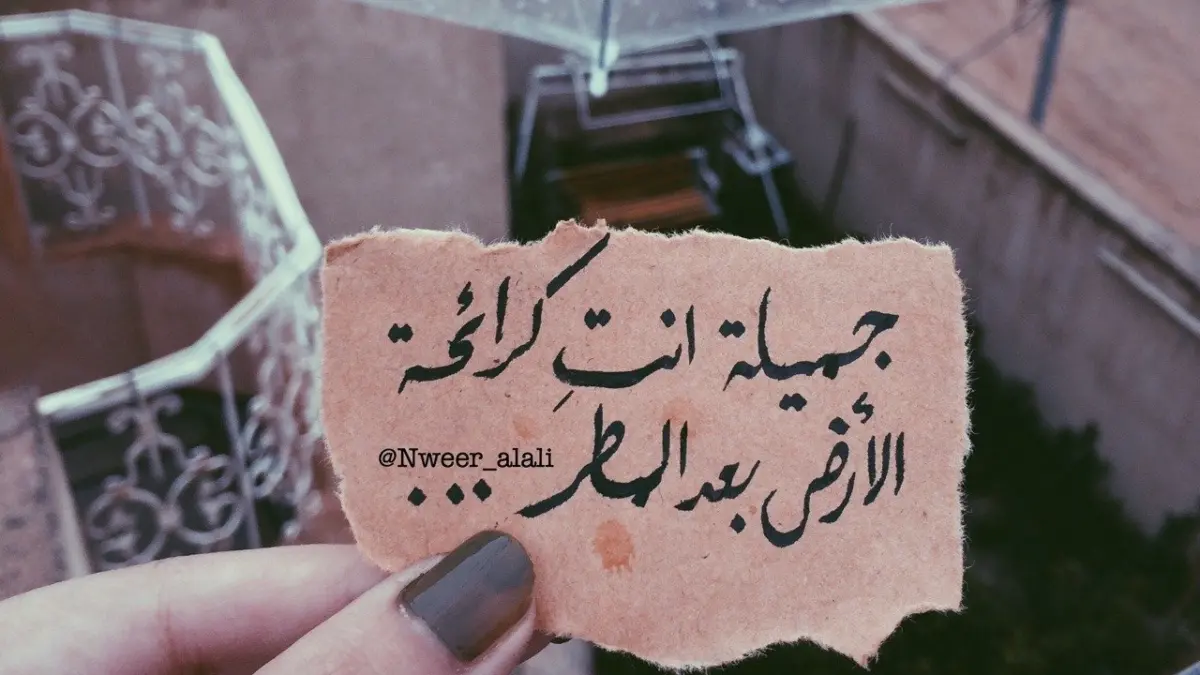 جميلة انتِ كرائحة
الأرض بعد المطر
@Nweer_alali
...